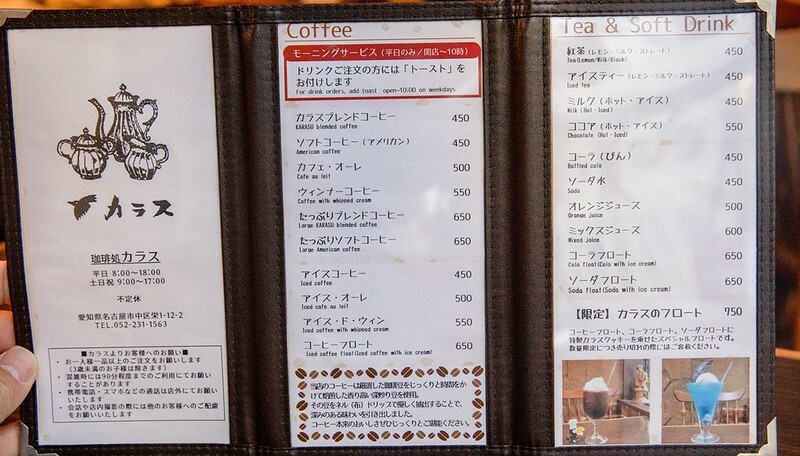 カラス
珈琲処カラス
平日 8:00～18:00
土日祝 9:00～17:00
不定休
愛知県名古屋市中区栄1-12-2
TEL.052-231-1563
■カラスよりお客様へのお願い■
・お一人様一品以上のご注文をお願いします
(3歳未満のお子様は除きます)
・混雑時には90分程度までのご利用にてお願い
することがあります
・携帯電話・スマホなどの通話は店外にてお願い
いたします
・会話や店内撮影の際には他のお客様へのご配慮
をお願いいたします
Coffee
モーニングサービス(平日のみ/開店～10時)
ドリンクご注文の方には「トースト」を
お付けします
For drink orders, add toast open-10:00 on weekdays
カラスブレンドコーヒー 450
KARASU blended coffee
ソフトコーヒー(アメリカン) 450
American coffee
カフェ・オーレ 500
Cafe au lait
ウィンナーコーヒー 550
Coffee with whipped cream
たっぷりブレンドコーヒー 650
Large KARASU blended coffee
たっぷりソフトコーヒー 650
Large American coffee
アイスコーヒー 450
Iced coffee
アイス・オーレ 500
Iced cafe au lait
アイス・ド・ウィン 550
Iced coffee with whipped cream
コーヒーフロート 650
Iced coffee float(Iced coffee with ice cream)
当店のコーヒーは厳選した珈琲豆をじっくりと時間をか
けて焙煎した香り高い深炒り豆を使用。
その豆をネル(布)ドリップで優しく抽出することで、
深みのある味わいを引き出しました。
コーヒー本来のおいしさぜひじっくりとご堪能ください。
Tea & Soft Drink
紅茶(レモン・ミルク・ストレート) 450
Tea(Lemon/Milk/Black)
アイスティー(レモン・ミルク・ストレート) 450
Iced tea
ミルク(ホット・アイス) 450
Milk (Hot・Iced)
ココア(ホット・アイス) 550
Chocolate (Hot・Iced)
コーラ(びん) 450
Bottled cola
ソーダ水 450
Soda
オレンジジュース 500
Orange juice
ミックスジュース 600
Mixed juice
コーラフロート 650
Cola float(Cola with ice cream)
ソーダフロート 650
Soda float(Soda with ice cream)
【限定】カラスのフロート 750
コーヒーフロート、コーラフロート、ソーダフロートに
特製カラスクッキーを乗せたスペシャルフロートです。
数量限定につき売り切れの際にはご容赦ください。